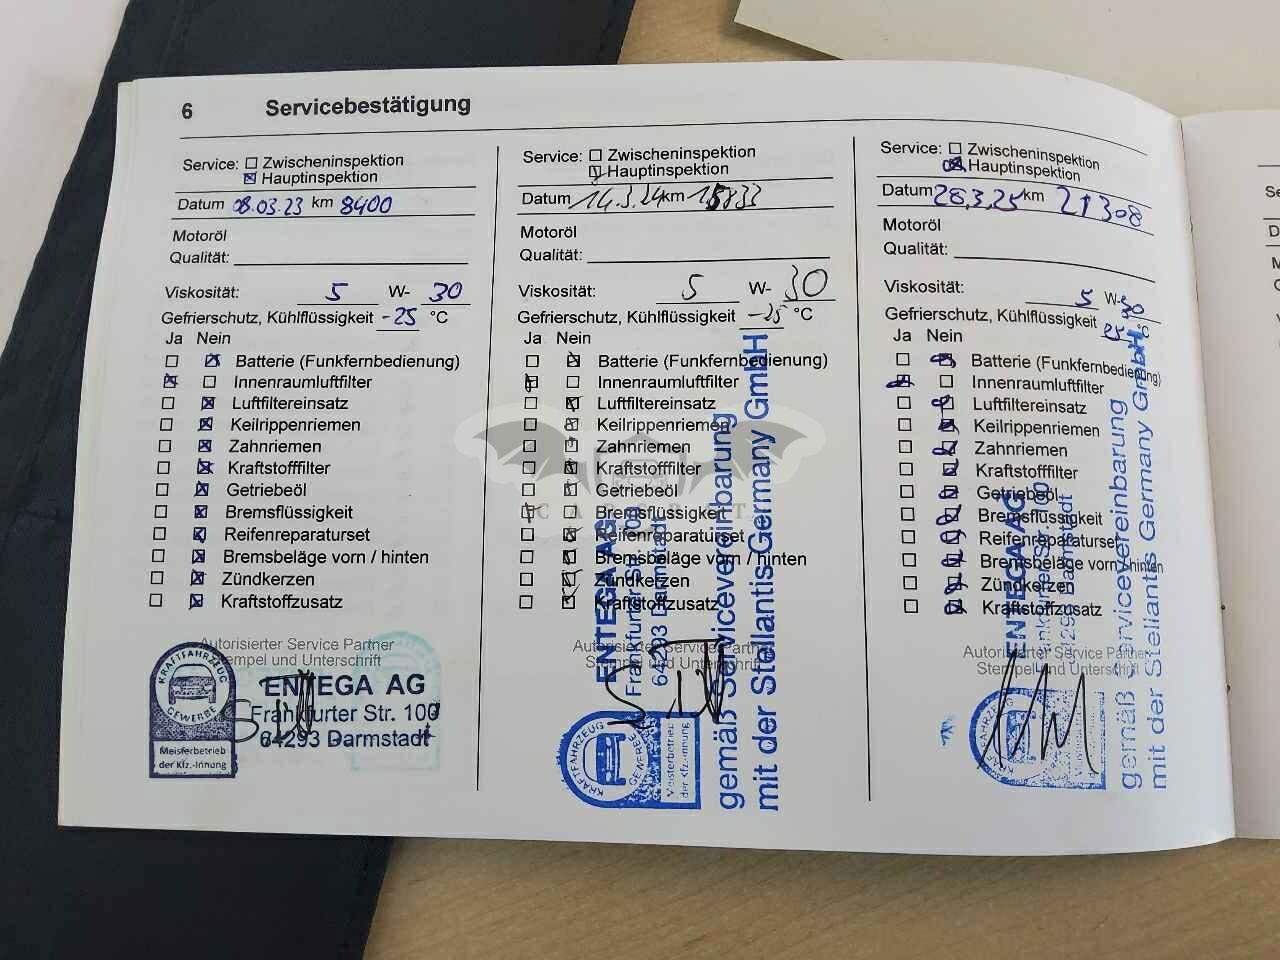 6 Servicebestätigung
Service: Zwischeninspektion
Hauptinspektion
Datum 08.03.23 km 8400
Motoröl
Qualität:
Viskosität: 5 W- 30
Gefrierschutz, Kühlflüssigkeit -25 °C
Ja Nein
Batterie (Funkfernbedienung)
Innenraumluftfilter
Luftfiltereinsatz
Keilrippenriemen
Zahnriemen
Kraftstofffilter
Getriebeöl
Bremsflüssigkeit
Reifenreparaturset
Bremsbeläge vorn / hinten
Zündkerzen
Kraftstoffzusatz
Autorisierter Service Partner
Stempel und Unterschrift
KRAFTFAHRZEUG
GEWERBE
Meisterbetrieb
der Kfz.-Innung
ENTEGA AG
Frankfurter Str. 100
64293 Darmstadt
Service: Zwischeninspektion
Hauptinspektion
Datum 14.3.24 km 15833
Motoröl
Qualität:
Viskosität: 5 W- 30
Gefrierschutz, Kühlflüssigkeit -25 °C
Ja Nein
Batterie (Funkfernbedienung)
Innenraumluftfilter
Luftfiltereinsatz
Keilrippenriemen
Zahnriemen
Kraftstofffilter
Getriebeöl
Bremsflüssigkeit
Reifenreparaturset
Bremsbeläge vorn / hinten
Zündkerzen
Kraftstoffzusatz
Autorisierter Service Partner
Stempel und Unterschrift
KRAFTFAHRZEUG
GEWERBE
Meisterbetrieb
der Kfz.-Innung
ENTEGA AG
Frankfurter Str. 100
64293 Darmstadt
gemäß Servicevereinbarung
mit der Stellantis Germany GmbH
Service: Zwischeninspektion
Hauptinspektion
Datum 28.3.25 km 21308
Motoröl
Qualität:
Viskosität: 5 W- 30
Gefrierschutz, Kühlflüssigkeit 25 °C
Ja Nein
Batterie (Funkfernbedienung)
Innenraumluftfilter
Luftfiltereinsatz
Keilrippenriemen
Zahnriemen
Kraftstofffilter
Getriebeöl
Bremsflüssigkeit
Reifenreparaturset
Bremsbeläge vorn / hinten
Zündkerzen
Kraftstoffzusatz
Autorisierter Service Partner
Stempel und Unterschrift
KRAFTFAHRZEUG
ENTEGA AG
Frankfurter Str. 100
64293 Darmstadt
gemäß Servicevereinbarung
mit der Stellantis Germany GmbH